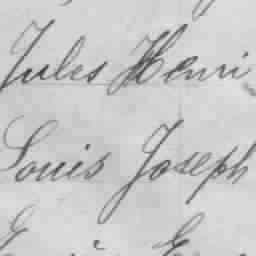 Jules Henri
Louis Joseph